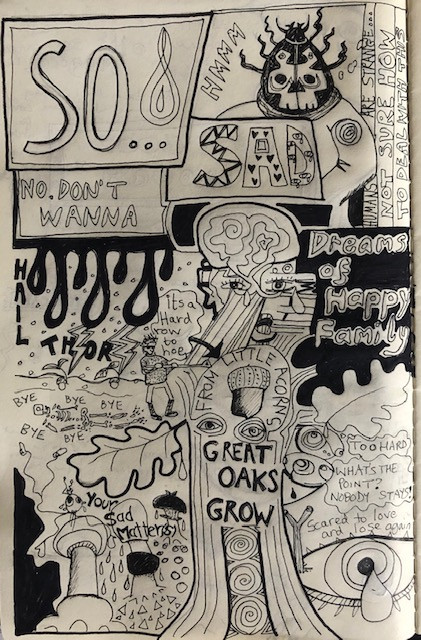 SO...
HMMM
HUMANS ARE STRANGE...
NOT SURE HOW
TO DEAL WITH THIS
SAD
NO. DON'T
WANNA
Dreams
of
Happy
Family
HAIL
THOR
It's a
Hard
row
to
hoe
BYE
BYE
BYE
BYE
BYE
BYE
FROM LITTLE ACORNS
GREAT
OAKS
GROW
TOO HARD
WHAT'S THE
POINT?
NOBODY STAYS!
Scared to love
and lose again
Your
Sad
Matters!